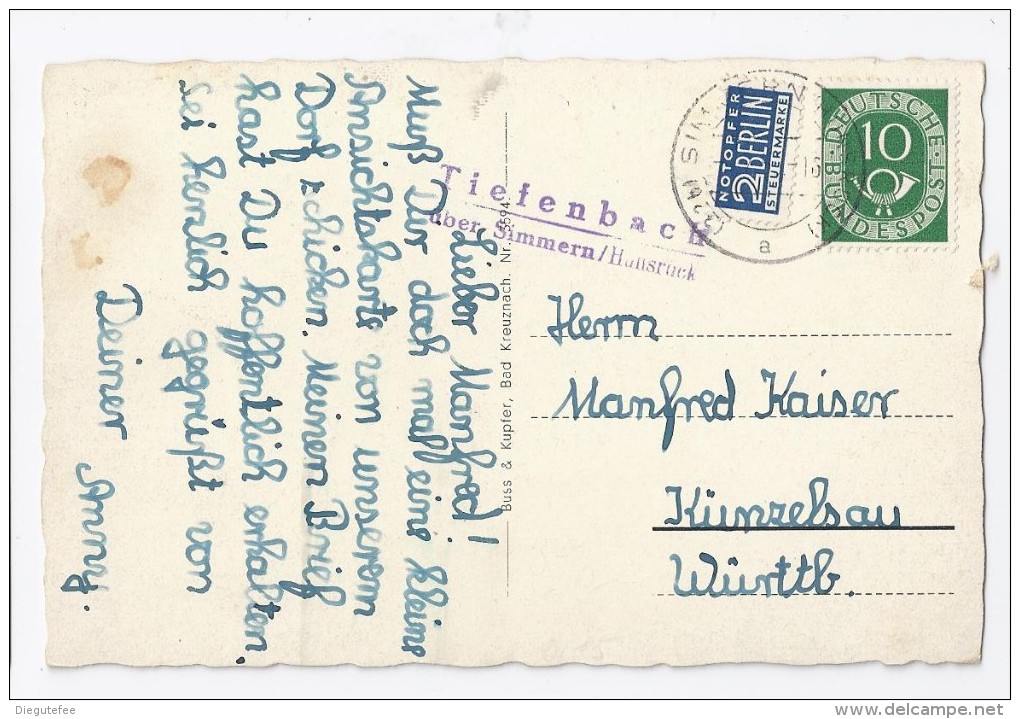 Lieber Manfred!
Muß Dir doch mal eine kleine
Ansichtskarte von unserem
Dorf schicken. Meinen Brief
hast Du hoffentlich erhalten.
Sei herzlich gegrüßt von
Deiner Anny.
Buss & Kupfer, Bad Kreuznach. Nr.
Tiefenbach
über Simmern/Hunsrück
NOTOPFER
2 BERLIN
STEUERMARKE
SIMMERN
a
DEUTSCHE BUNDESPOST
10
Herrn
Manfred Kaiser
Künzelsau
Württb.
Diegutefee
delcampe.net